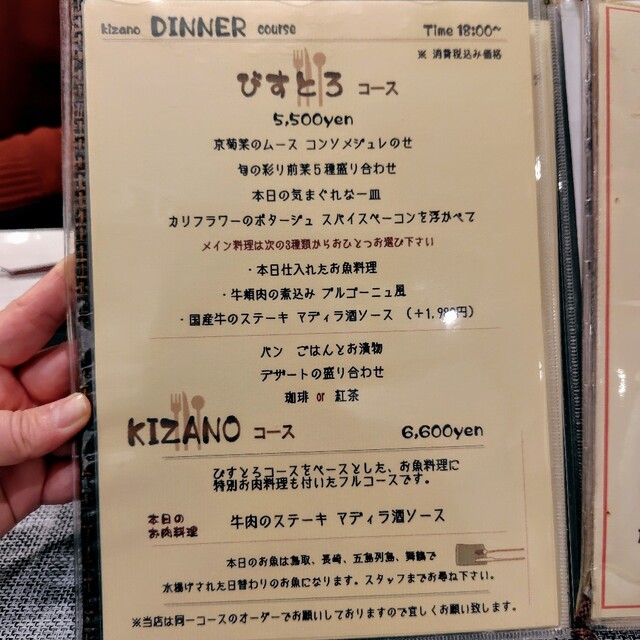 kizano DINNER course Time 18:00~
※ 消費税込み価格
びすとろ コース
5,500yen
京菊菜のムース コンソメジュレのせ
旬の彩り前菜5種盛り合わせ
本日の気まぐれな一皿
カリフラワーのポタージュ スパイスベーコンを浮かべて
メイン料理は次の3種類からおひとつお選び下さい
・本日仕入れたお魚料理
・牛頬肉の煮込み ブルゴーニュ風
・国産牛のステーキ マディラ酒ソース (+1,980円)
パン ごはんとお漬物
デザートの盛り合わせ
珈琲 or 紅茶
KIZANO コース 6,600yen
びすとろコースをベースとした、お魚料理に
特別お肉料理も付いたフルコースです。
本日の
お肉料理 牛肉のステーキ マディラ酒ソース
本日のお魚は鳥取、長崎、五島列島、舞鶴で
水揚げされた日替わりのお魚になります。スタッフまでお尋ね下さい。
※当店は同一コースのオーダーでお願いしておりますので宜しくお願い致します。